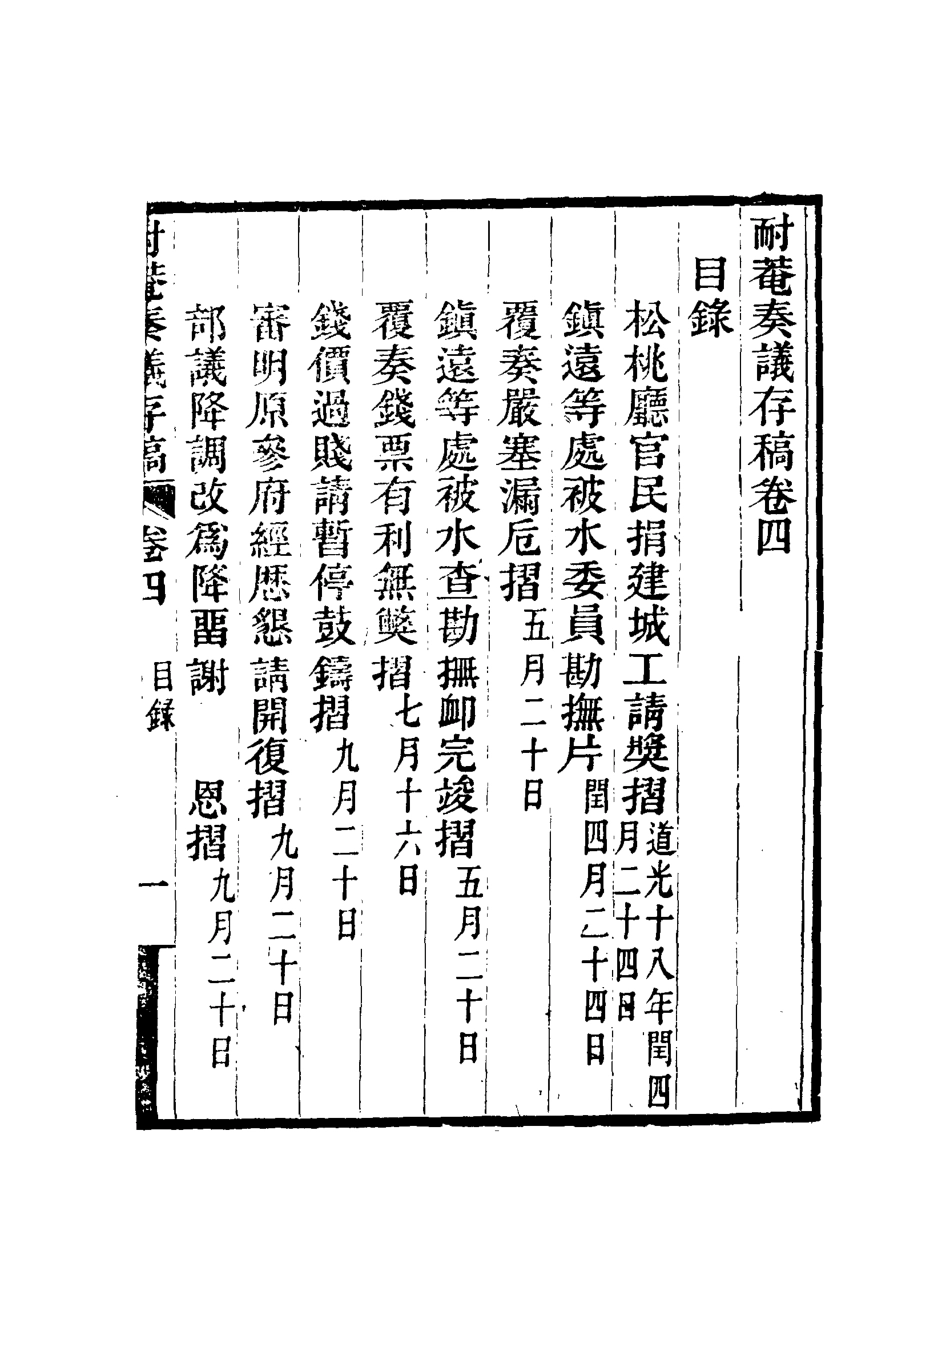 耐菴奏議存稿卷四
目錄
松桃廳官民捐建城工請獎摺道光十八年閏四月二十四日
鎭遠等處被水委員勘撫片閏四月二十四日
覆奏嚴塞漏卮摺五月二十日
鎭遠等處被水查勘撫卹完竣摺五月二十日
覆奏錢票有利無獘摺七月十六日
錢價過賤請暫停鼓鑄摺九月二十日
審明原參府經歷懇請開復摺九月二十日
部議降調改爲降畱謝 恩摺九月二十日
耐菴奏議存稿 卷四 目錄 一